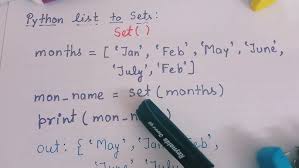 Python list to Sets:
Set()
months = ['Jan', 'Feb', 'May', 'June,
'July', 'Feb']
mon_name = set(months)
print(mon_na
out: {'May', 'Jan, Feb,
'June